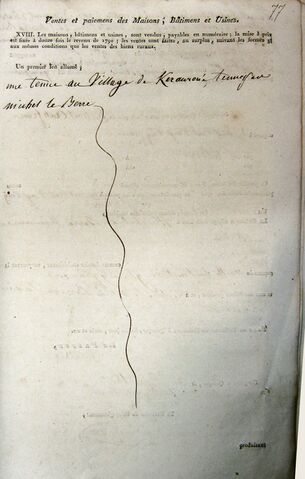 77
Ventes et paiemens des Maisons, Bâtimens et Usines.
XVIII. Les maisons, bâtimens et usines, sont vendus, payables en numéraire; la mise à prix
est fixée à douze fois le revenu de 1790; les ventes sont faites, au surplus, suivant les formes et
aux mêmes conditions que les ventes des biens ruraux.
Un premier lot allumé;
une tenue au Village de
michel le Berre
produisant